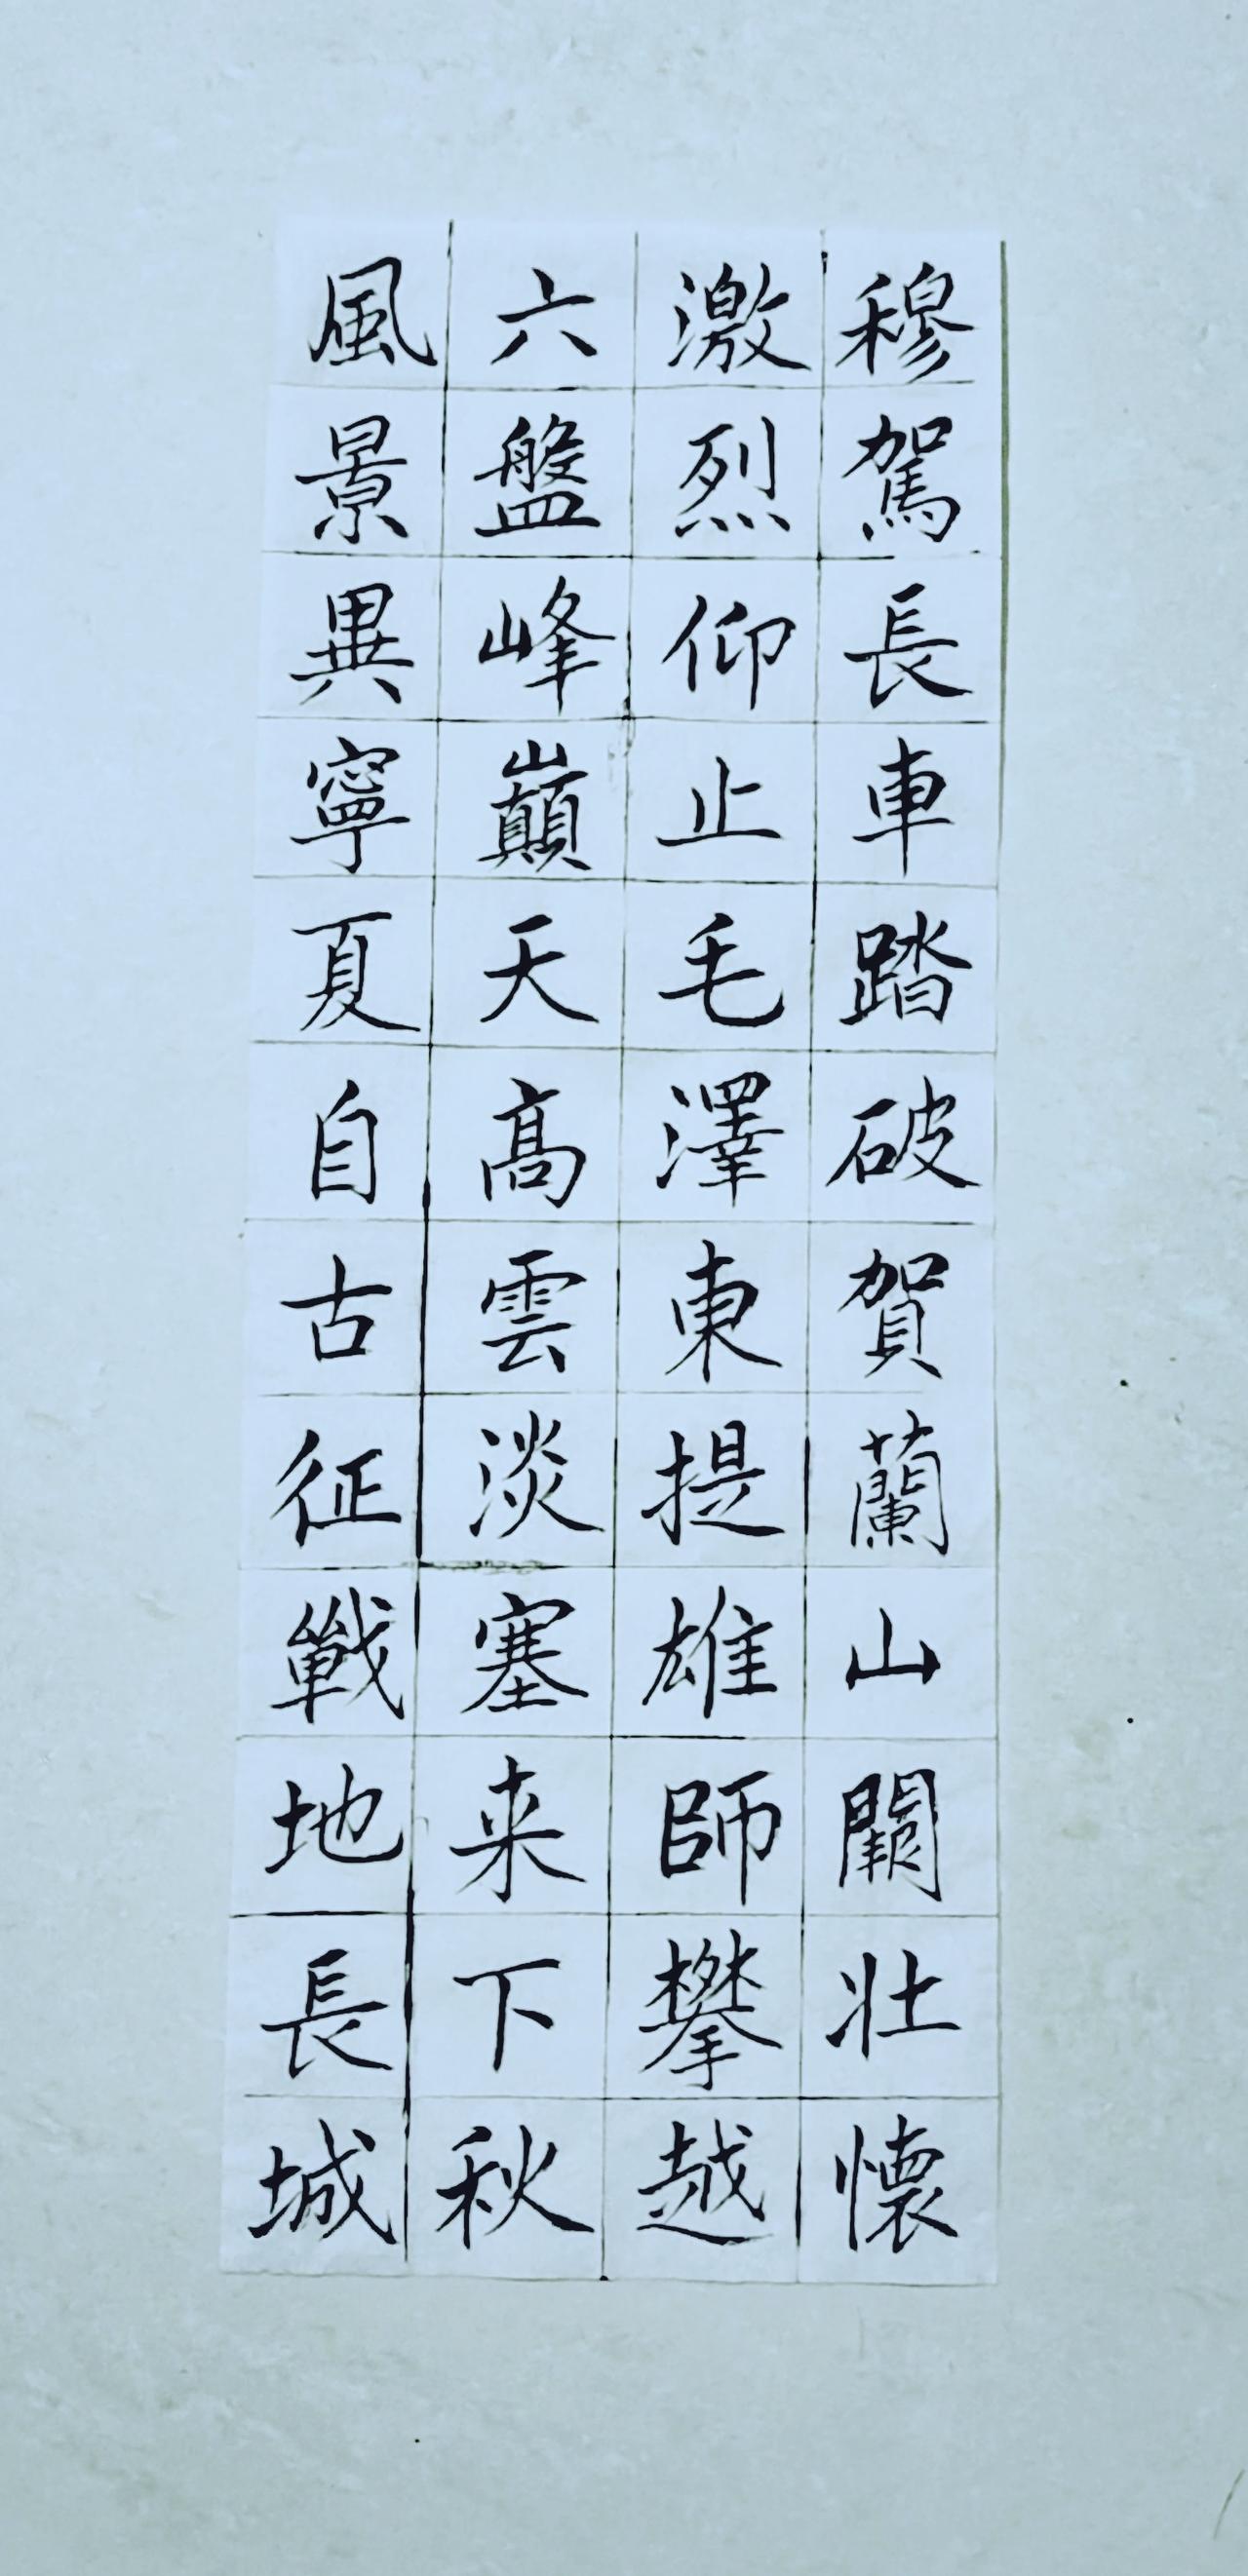 穆駕長車踏破賀蘭山闕壯懷
激烈仰止毛澤東提雄師攀越
六盤峰巔天高雲淡塞来下秋
風景異寧夏自古征戰地長城